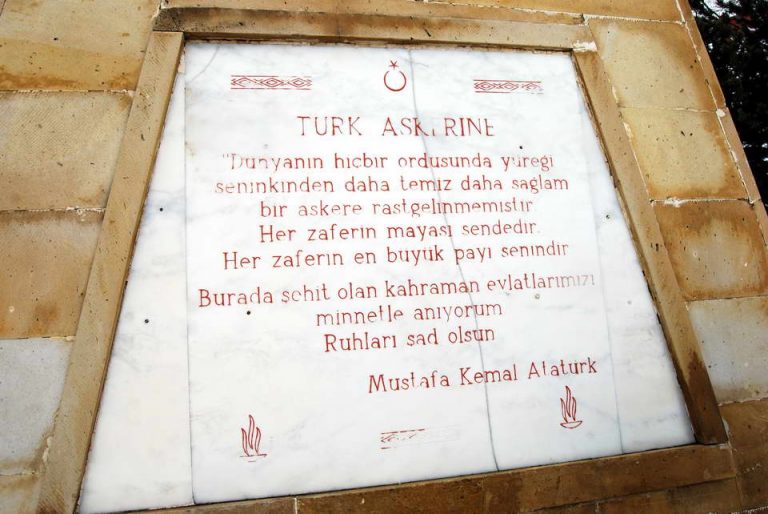 TURK ASKERINE
"Dunyanın hiçbir ordusunda yüreği
seninkinden daha temiz daha sağlam
bir askere rastgelinmemiştir
Her zaferin mayası sendedir.
Her zaferin en büyük payı senindir
Burada şehit olan kahraman evlatlarımızı
minnetle anıyorum
Ruhları sad olsun
Mustafa Kemal Atatürk